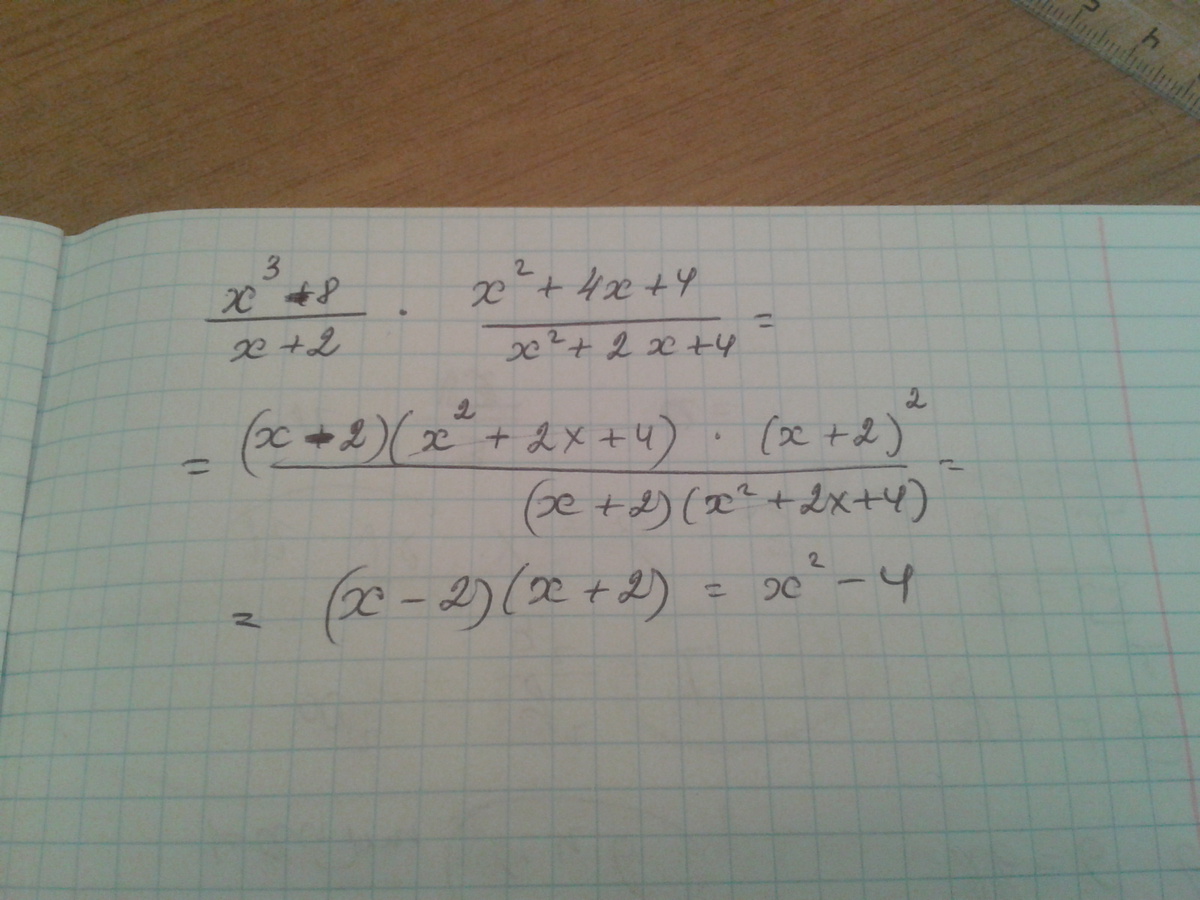 x³ - 8 / x + 2 · x² + 4x + 4 / x² + 2x + 4 =
= (x - 2)(x² + 2x + 4) · (x + 2)² / (x + 2)(x² + 2x + 4) =
= (x - 2)(x + 2) = x² - 4